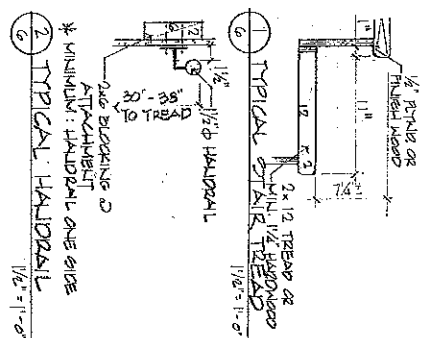 1"
1/2" PLYWD OR
FINISH WOOD
11"
7 1/4"
2 x 12
2 x 12 TREAD OR
MIN. 1 1/4" HARDWOOD
1
G
TYPICAL STAIR TREAD
1 1/2" = 1'-0"
1 1/2"
1 1/2" Φ HANDRAIL
30"-38"
TO TREAD
2x6 BLOCKING @
ATTACHMENT
* MINIMUM: HANDRAIL ONE SIDE
2
G
TYPICAL HANDRAIL
1 1/2" = 1'-0"